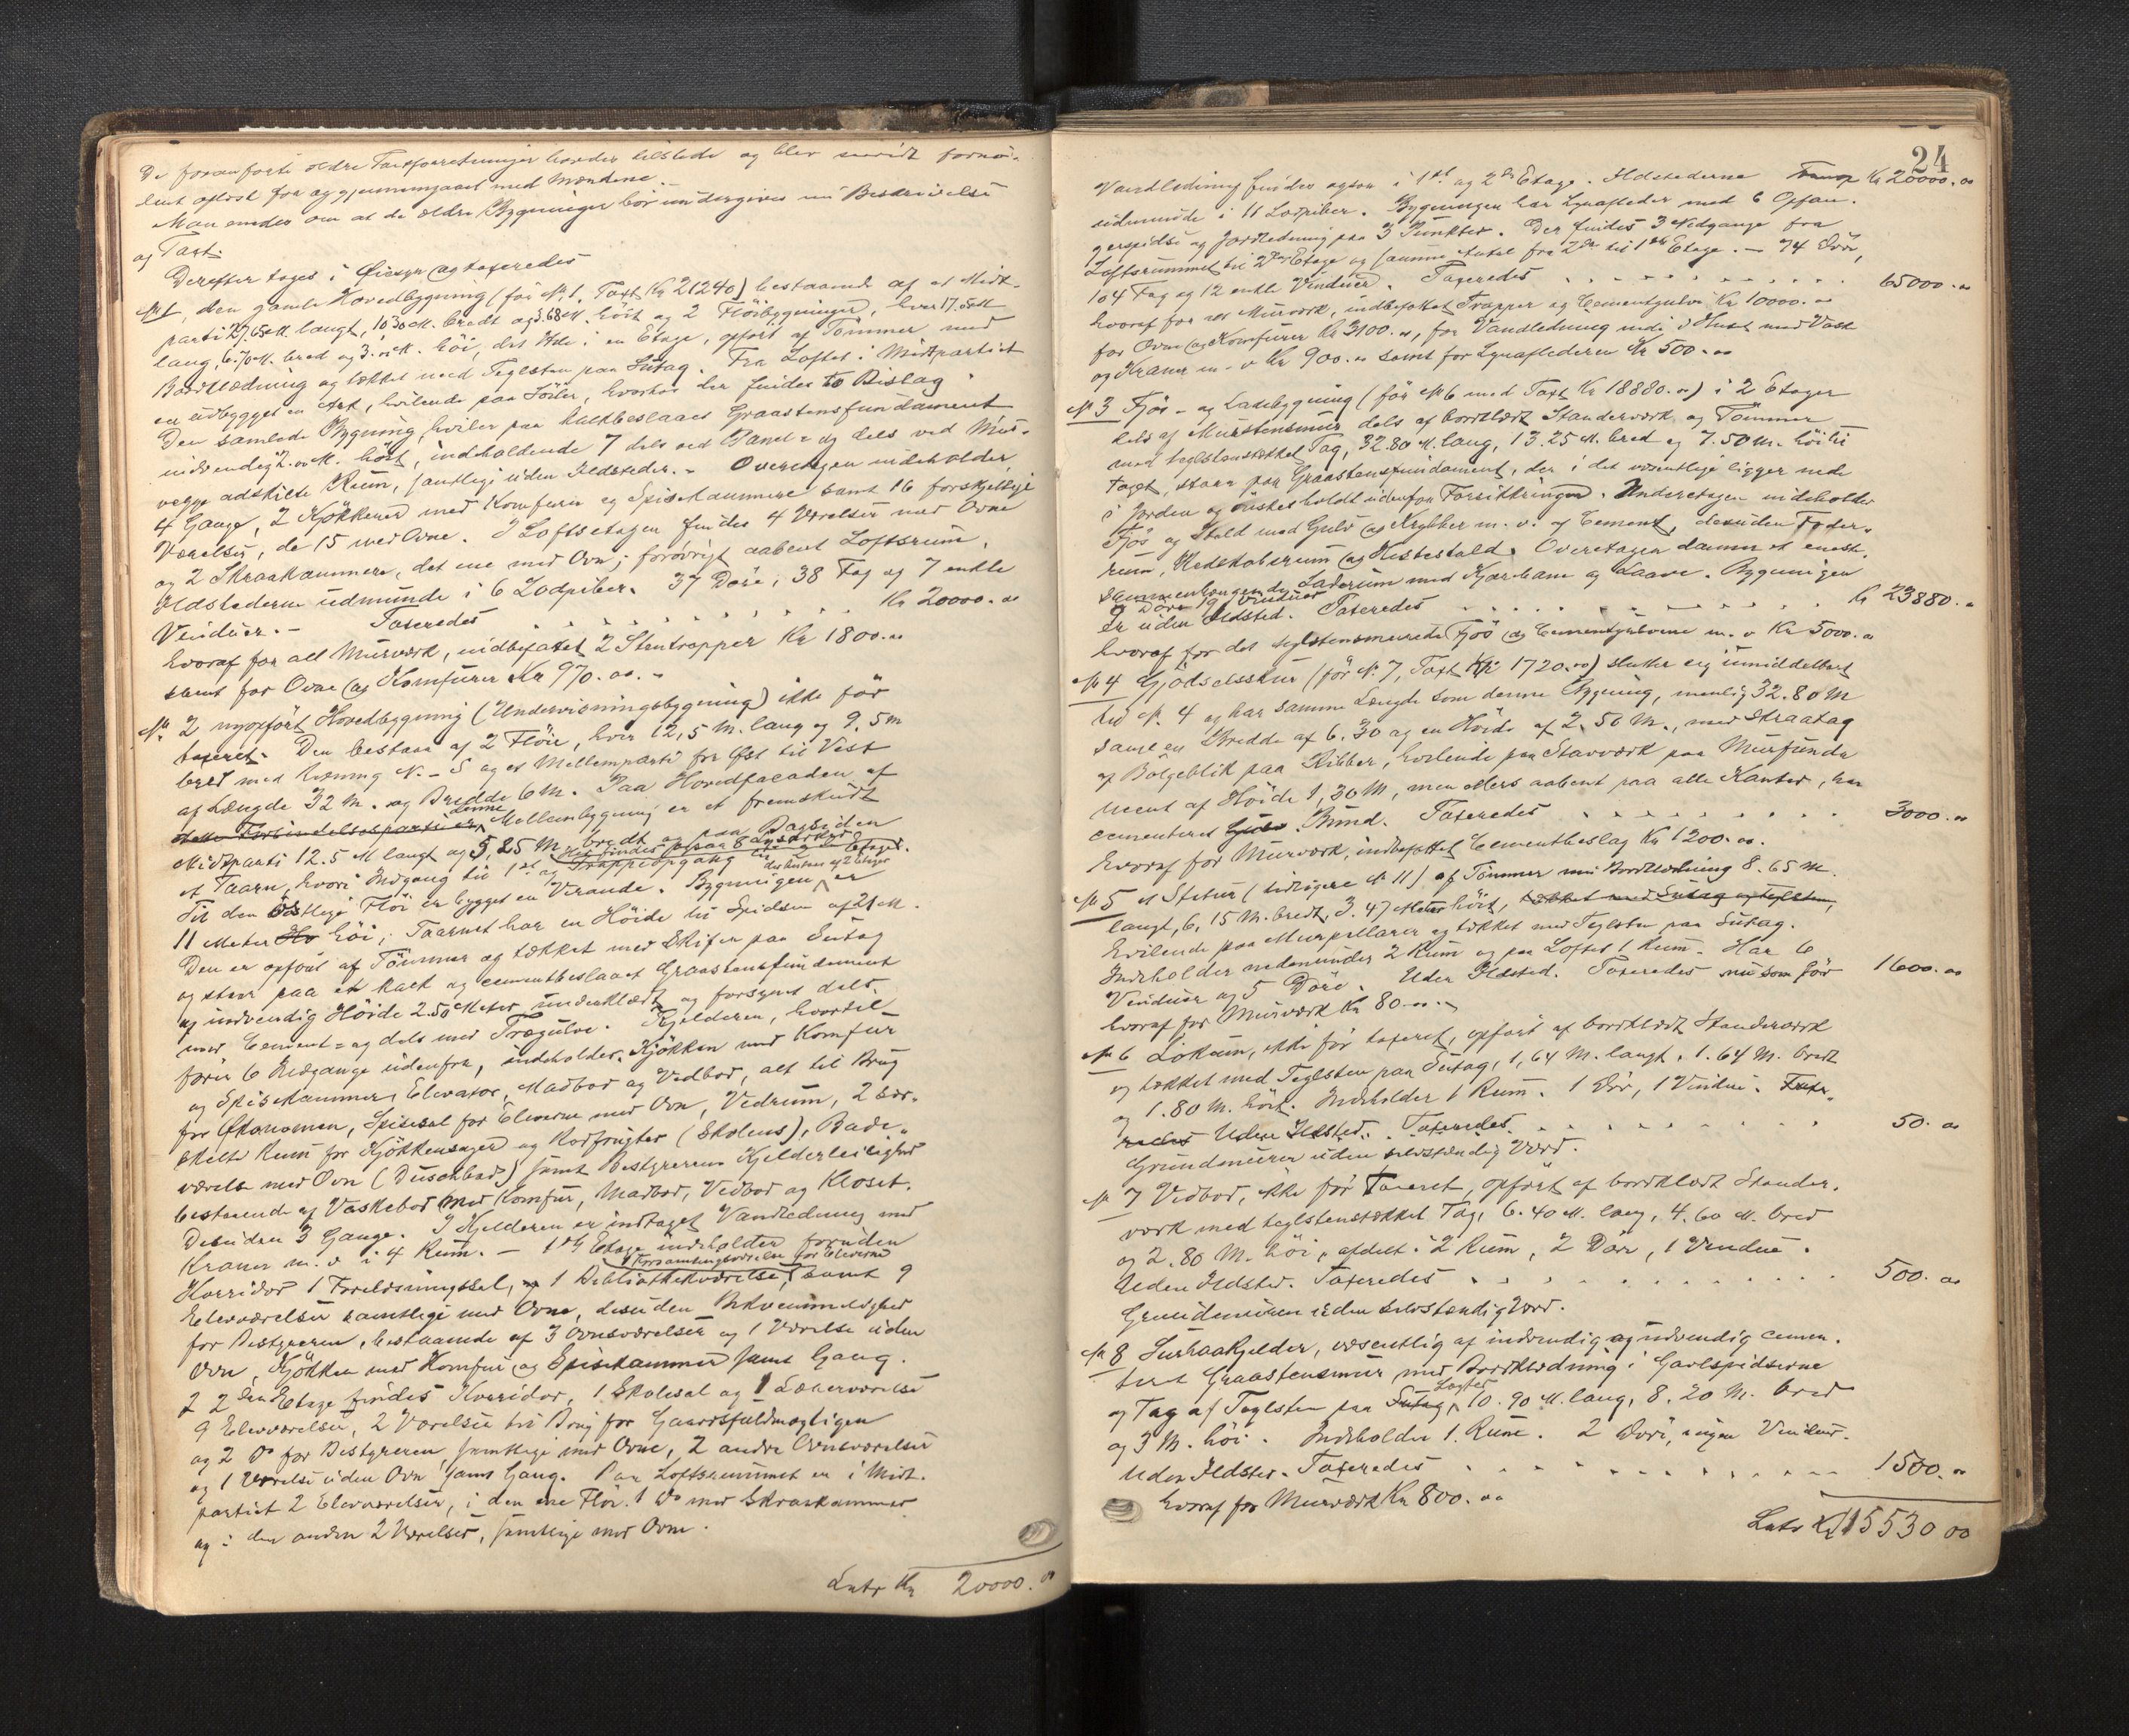 De foranførte ældre Taxtforretninger havdes tilstede og blev saavidt fornø-
dent oplæst for og gjennemgaaet med Mændene.
Man enedes om at de ældre Bygninger bør undergives ny Beskrivelse
og Taxt.
Derefter toges i Øiesyn og taxeredes
No 1, den gamle Hovedbygning (før No 1. Taxt Kr 21240) bestaaende af et Midt-
parti 27.65 M. langt, 10.30 M. bredt og 5.68 M. høit og 2 Fløibygninger, hver 17.
lang, 6.70 M. bred og 3. M. høi, det Hele i en Etage, opført af Tømmer med
Bordklædning og tækket med Teglsten paa Sutag. Fra Loftet i Midtpartiet
er udbygget en Ark, hvilende paa Søiler, hvorhos der findes to Bislag.
Den samlede Bygning hviler paa kalkbeslaaet Graastensfundament
indvendig 2.00 M. høit, indeholdende 7 dels ved Panel- og dels ved Mur-
vægge adskilte Rum, samtlige uden Ildsteder. - Overetagen indeholder
4 Gange, 2 Kjøkkener med Komfurer og Spisekammere samt 16 forskjellige
Værelser, de 15 med Ovne. I Loftsetagen findes 4 Værelser med Ovne
og 2 Skraakammere, det ene med Ovn; forøvrigt aabent Loftsrum.
Ildstederne udmunde i 6 Lodpiber. 37 Døre, 38 Fag og 7 enkle
Vinduer. - Taxeredes . . . . . . Kr 20000.00
hvoraf for alt Murværk, indbefattet 2 Stentrapper Kr 1800.00
samt for Ovne og Komfurer Kr 970.00. -
No 2 nyopført Hovedbygning (Undervisningsbygning) ikke før
taxeret. Den bestaar af 2 Fløie, hver 12,5 M. lang og 9.5 M
bred med Retning N. - S og et Mellemparti fra Øst til Vest
af Længde 32 M. og Bredde 6 M. Paa Hovedfacaden af
dette Forbindelsesparti er denne Mellembygning er et fremskudt
Midtparti 12.5 M langt og 5,25 M bredt og paa Bagsiden
et Taarn, hvori Indgang til 1ste og Trappeopgang til 2den Etage.
Til den østlige Fløi er bygget en Veranda. Bygningen, der bestaar af 2 Etager er
11 Meter Hø høi; Taarnet har en Høide til Spidsen af 21 M.
Den er opført af Tømmer og tækket med Skifer paa Sutag
og staar paa et kalk og cementbeslaaet Graastensfundament
af indvendig Høide 2.50 Meter, underklædt og forsynet dels
med Cement- og dels med Trægulve. Kjelderen, hvortil
fører 6 Nedgange udenfra, indeholder: Kjøkken med Komfur
og Spisekammer, Elevator, Madbod og Vedbod, alt til Brug
for Økonomen, Spisesal for Eleverne med Ovn, Vedrum, 2 sær-
skilte Rum for Kjøkkensager og Rodfrugter (Skolens), Bade-
værelse med Ovn (Duschbad) samt Bestyrerens Kjelderleilighed
bestaaende af Vaskebod med Komfur, Madbod, Vedbod og Kloset.
Desuden 3 Gange. I Kjelderen er indtaget Vandledning med
Kraner m. v i 4 Rum. - 1ste Etage indeholder foruden
Korridor 1 Forelæsningssal, og 1 Bibliothekværelse, 1 Forsamlingsværelse for Eleverne samt 9
Elevværelser samtlige med Ovne, desuden Bekvemmelighed
for Bestyreren, bestaaende af 3 Ovnsværelser og 1 Værelse uden
Ovn, Kjøkken med Komfur og Spisekammer samt Gang.
I 2den Etage findes Korridor, 1 Skolesal og 1 Lærerværelse
9 Elevværelser, 2 Værelser til Brug for Gaardsfuldmægtigen
og 2 Do for Bestyreren, samtlige med Ovne, 2 andre Ovnsværelser
og 1 Værelse uden Ovn samt Gang. Paa Loftsrummet er i Midt-
partiet 2 Elevværelser, i den ene Fløi 1 Do med Skraakammer
og i den anden 2 Værelser, samtlige med Ovne.
Latr Kr 20000.00
24
Transp Kr 20000.00
Vandledning findes ogsaa i 1ste og 2den Etage. Ildstederne
udmunde i 11 Lodpiber. Bygningen har Lynafleder med 6 Opfan-
gerspidse og Jordledning paa 3 Punkter. Der findes 3 Nedgange fra
Loftsrummet til 2den Etage og samme Antal fra 2den til 1ste Etage. - 74 Døre,
104 Fag og 12 enkle Vinduer. Taxeredes . . . . . . 65000.00
hvoraf for alt Murværk, indbefattet Trapper og Cementgulve Kr 10000.00
for Ovne og Komfurer Kr 3100.00, for Vandledning inde i Huset med Vask
og Kraner m. v Kr 900.00 samt for Lynaflederen Kr 500.00
No 3 Fjøs- og Ladebygning (før No 6 med Taxt Kr 18880.00) i 2 Etager
dels af Murstensmur dels af bordklædt Standerværk og Tømmer
med teglstenstækket Tag, 32.80 M. lang, 13.25 M. bred og 7.50 M. høi til
Taget, staar paa Graastensfundament, der i det væsentlige ligger nede
i Jorden og ønskes holdt udenfor Forsikringen. Underetagen indeholder
Fjøs og Stald med Gulv og Krybber m. v. af Cement, desuden Foder-
rum, Redskabsrum og Hestestald. Overetagen danner et enest.
sammenhængende Laderum med Kjørebane og Laave. Bygningen
9 Døre 19 Vinduer
er uden Ildsted. Taxeredes . . . . . . Kr 23880.00
hvoraf for det teglstensmurede Fjøs og Cementgulvene m. v Kr 5000.00
No 4 Gjødselsskur (før No 7, Taxt Kr 1720.00) slutter sig umiddelbart
til No 4 og har samme Længde som denne Bygning, nemlig 32.80 M
samt en Bredde af 6.30 og en Høide af 2.50 M., med Skraatag
af Bølgeblik paa Ribber, hvilende paa Stavværk paa Murfunda
ment af Høide 1,30 M, men ellers aabent paa alle Kanter, har
cementeret Gulv Bund. Taxeredes . . . . . . 3000.00
hvoraf for Murværk, indbefattet Cementbeslag Kr 1200.00.
No 5 et Stabur (tidligere No 11) af Tømmer med Bordklædning 8.65 M.
langt, 6,15 M. bredt, 3.47 Meter høit, tækket med Sutag og Teglsten,
hvilende paa Murpillarer og tækket med Teglsten paa Sutag.
Indeholder nedenunder 2 Rum og paa Loftet 1 Rum. Har 6
Vinduer og 5 Døre. Uden Ildsted. Taxeredes nu som før 1600.00
hvoraf for Murværk Kr 80.00
No 6 Lokum, ikke før taxeret, opført af bordklædt Standerværk
og tækket med Teglsten paa Sutag, 1,64 M. langt, 1.64 M. bredt
og 1.80 M. høit. Indeholder 1 Rum. 1 Dør, 1 Vindue. Taxe-
redes Uden Ildsted. Taxeredes . . . . . . 50.00
Grundmuren uden selvstændig Værd.
No 7 Vedbod, ikke før Taxeret, opført af bordklædt Stander-
værk med teglstenstækket Tag, 6.40 M. lang, 4.60 M. bred
og 2.80 M. høi, afdelt i 2 Rum, 2 Døre, 1 Vindue.
Uden Ildsted. Taxeredes . . . . . . 500.00
Grundmuren uden selvstændig Værd.
No 8 Surhaakjelder, væsentlig af indvendig og udvendig cemen-
teret Graastensmur med Bordklædning i Gavlspidserne
og Tag af Teglsten paa Sutag Lægter, 10.90 M. lang, 8.20 M. bred
og 3 M. høi. Indeholder 1 Rum. 2 Døre, ingen Vinduer.
Uden Ildsted. Taxeredes . . . . . . 1500.00
hvoraf for Murværk Kr 800.00
Latr Kr 115530 00